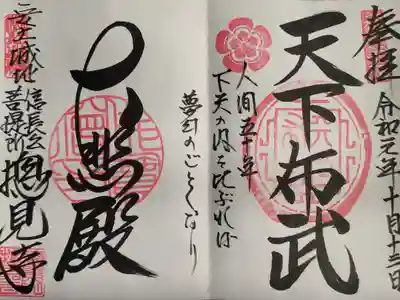 奉拝 令和元年十月十三日
天下布武
人間五十年
下天の内を比ぶれば
夢幻のごとくなり
殿
信長公
菩提所
安土城址
摠見寺